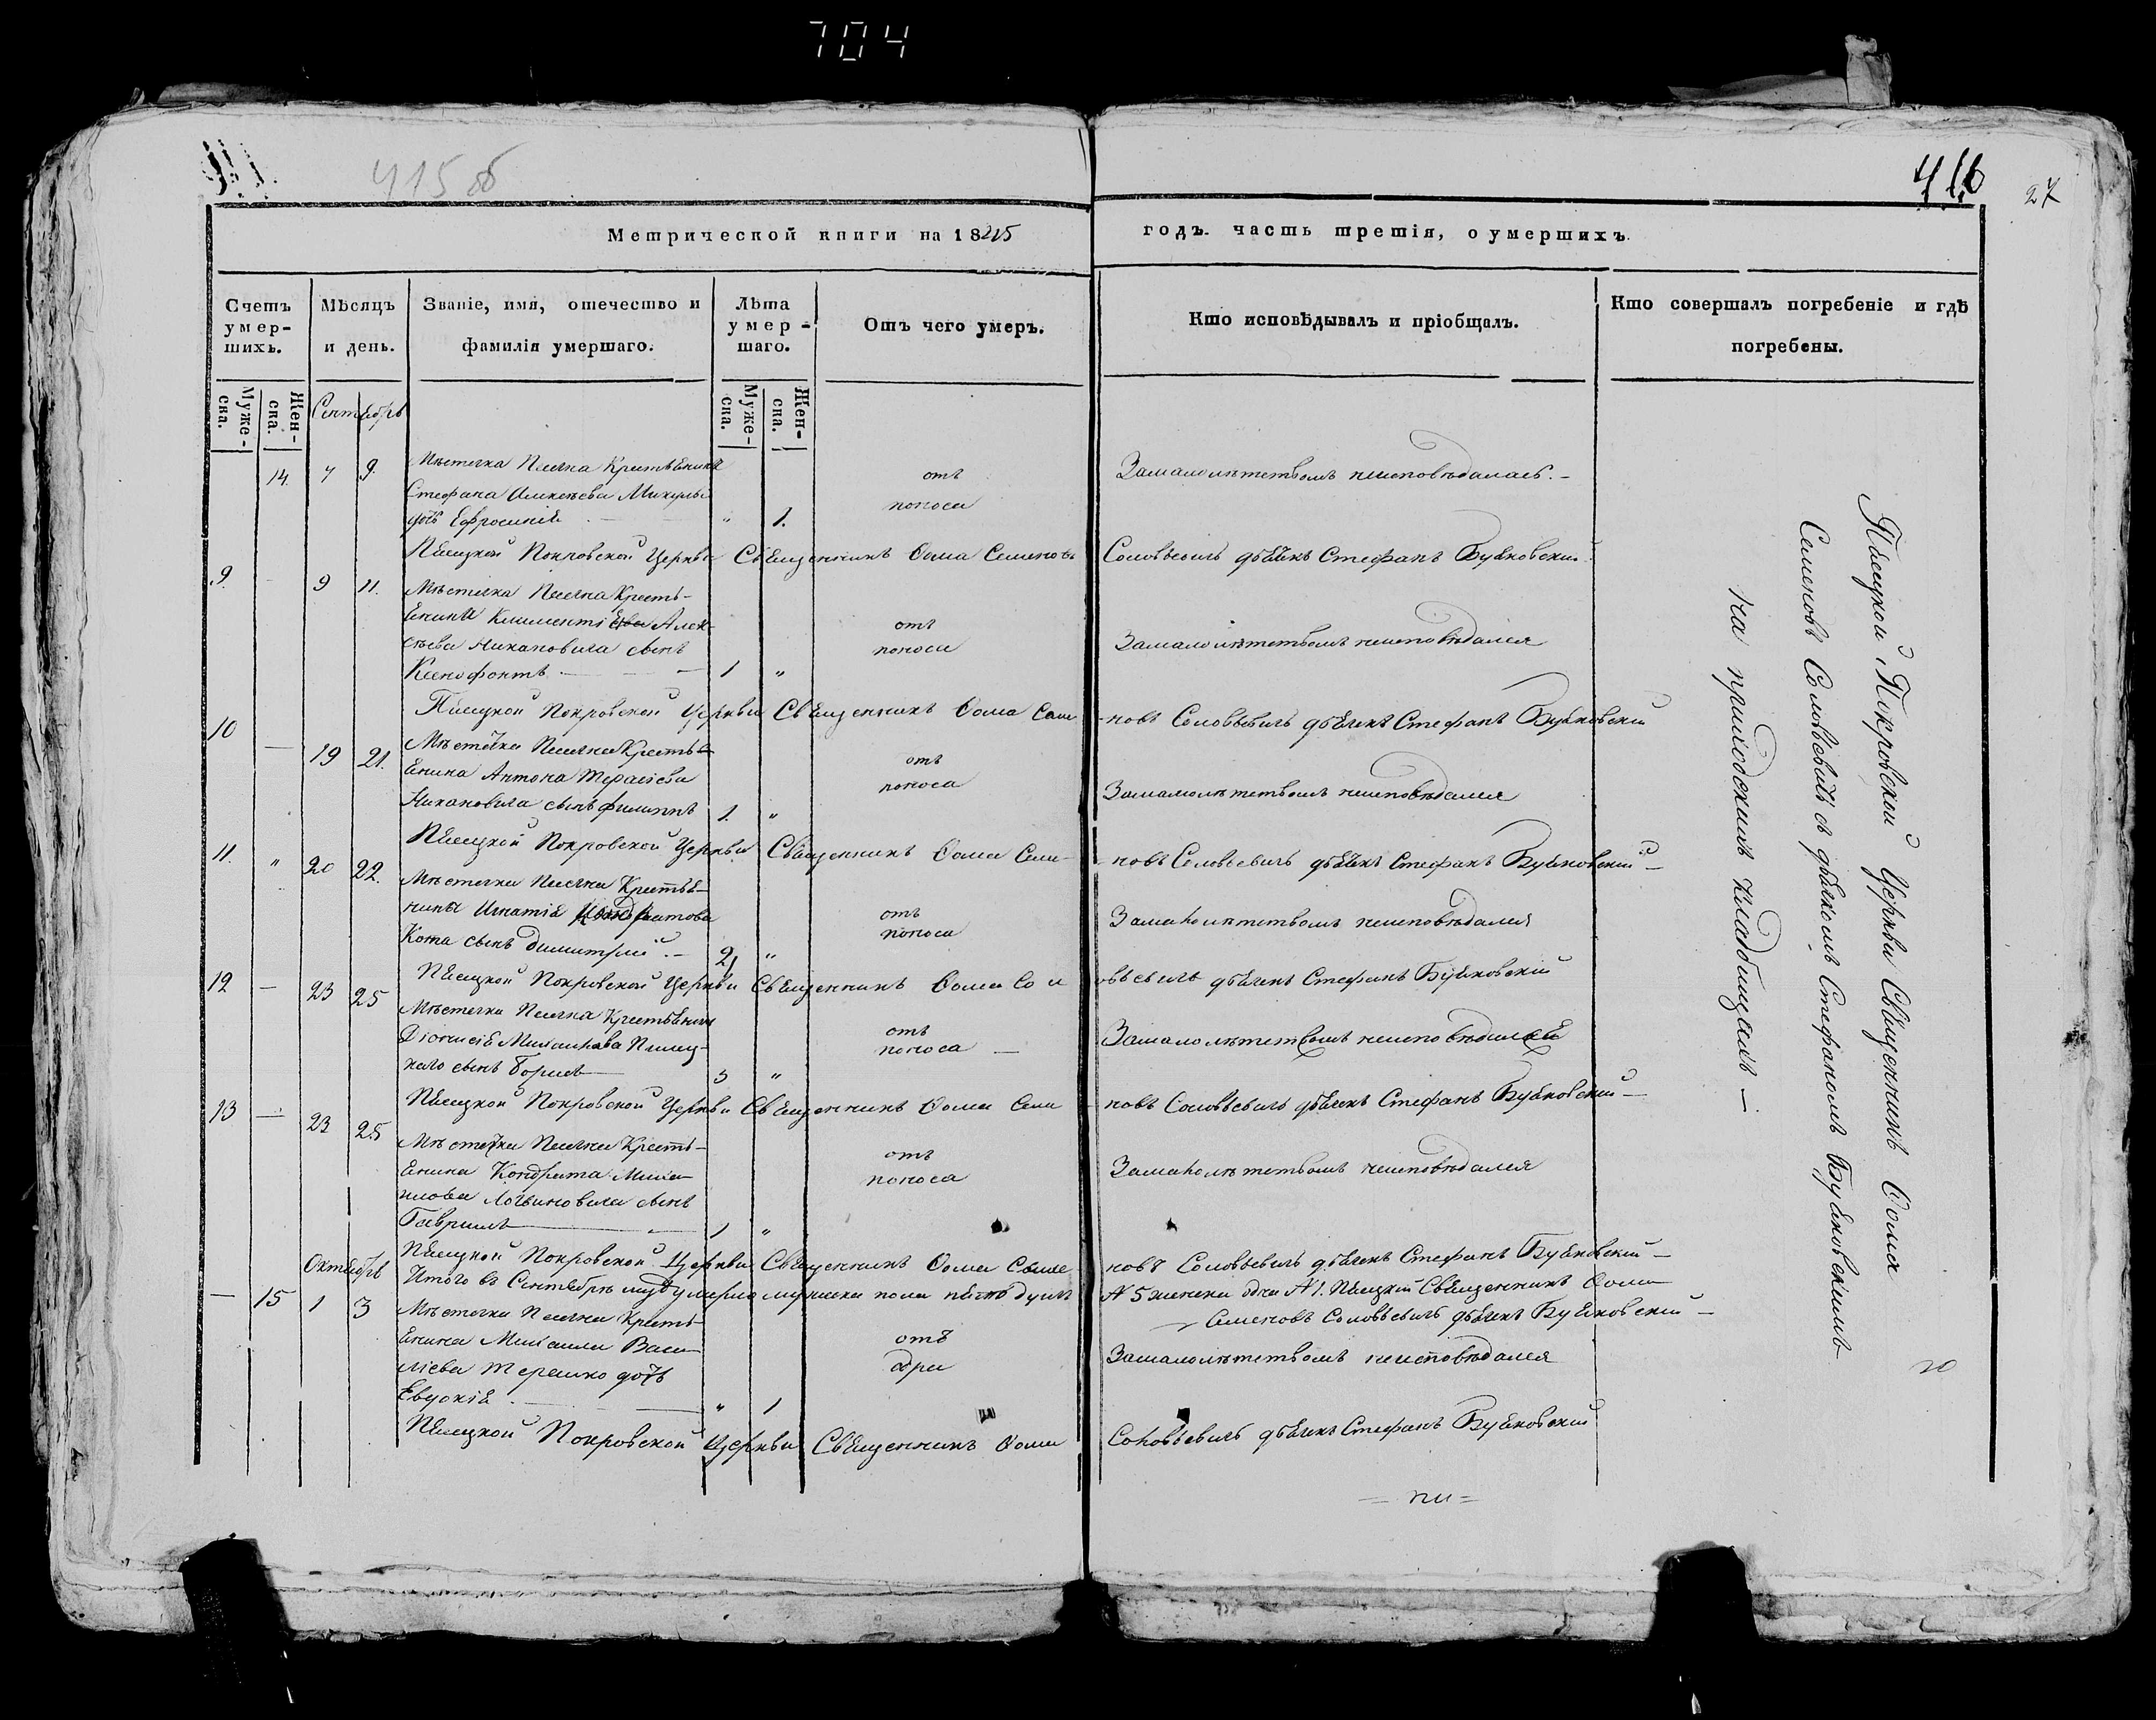 704
415 об
416
27
Метрической книги на 1845
годъ. часть третія, о умершихъ.
Счетъ умер-
шихъ.
Мѣсяцъ
и день.
Званіе, имя, отечество и
фамилія умершаго.
Лѣта
умер-
шаго.
Отъ чего умеръ.
Кто исповѣдывалъ и пріобщалъ.
Кто совершалъ погребеніе и гдѣ
погребены.
Муже-
ска.
Жен-
ска.
Сентябрь
Муже-
ска.
Жен-
ска.
14. 7 9. Мѣстечка Песчана Крестьянина
Стефана Алексѣева
дочь Ефросинія " 1.
отъ
поноса
За малолѣтствомъ неисповѣдалась. -
Покровской Церкви Священникъ Фома Семеновъ Соловьевичъ дьячекъ Стефанъ Буяновский
9. - 9 11. Мѣстечка Песчана Кресть-
янина Климентія Алек-
сѣева Никановича сынъ
Ксенофонтъ - 1 "
отъ
поноса
За малолѣтствомъ неисповѣдался
Покровской Церкви Священникъ Фома Семе-новъ Соловьевичъ дьячекъ Стефанъ Буяновский
10 - 19 21. Мѣстечка Песчана Кресть-
янина Антона Терасіева
Никановича сынъ Филиппъ 1. "
отъ
поноса
За малолѣтствомъ неисповѣдался
Покровской Церкви Священникъ Фома Семе-новъ Соловьевичъ дьячекъ Стефанъ Буяновский -
11. " 20 22. Мѣстечка Песчана Крестья-
нина Игнатія Кондратова
Кота сынъ Димитрий. - 2 "
отъ
поноса
За малолѣтствомъ неисповѣдался
Покровской Церкви Священникъ Фома Соловьевичъ дьячекъ Стефанъ Буяновский
12 - 23 25 Мѣстечка Песчана Крестьянина
Діонисія Михаилова
сынъ Борисъ 3 "
отъ
поноса -
За малолѣтствомъ неисповѣдался
Покровской Церкви Священникъ Фома Семе-новъ Соловьевичъ дьячекъ Стефанъ Буяновский -
13 - 23 25 Мѣстечка Песчана Кресть-
янина Кондрата Миха-
илова Логвиновича сынъ
Гавриилъ 1 "
отъ
поноса
За малолѣтствомъ неисповѣдался
Покровской Церкви Священникъ Фома Семе-новъ Соловьевичъ дьячекъ Стефанъ Буяновский -
Октябрь
Итого въ Сентябрѣ мужеска пола пять душъ № 5 женска одна № 1. Священникъ Фома
Семеновъ Соловьевичъ дьячекъ Буяновский -
- 15 1 3 Мѣстечка Песчана Кресть-
янина Михаила Васи-
лієва Терешко дочь
Евдокія " 1
отъ
За малолѣтствомъ неисповѣдался
Покровской Церкви Священникъ Фома Соловьевичъ дьячекъ Стефанъ Буяновский
Покровской Церкви Священникъ Фома
Семеновъ Соловьевичъ съ дьячкомъ Стефаномъ Буяновскимъ
на приходскихъ кладбищахъ -
20